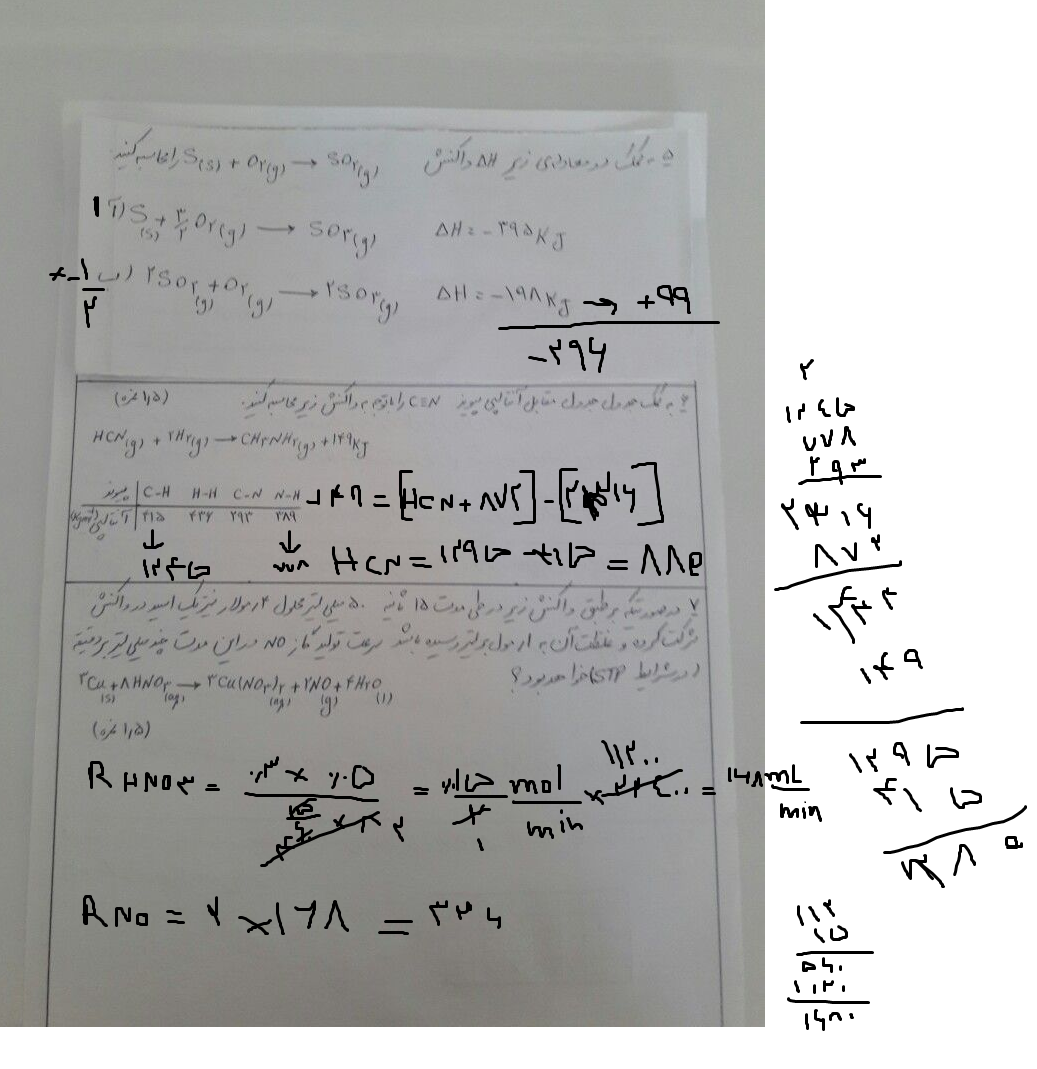 ۵- به کمک دو معادله‌ی زیر ΔH واکنش S(s) + O۲(g) → SO۲(g) را محاسبه کنید.
۱ آ) S(s) + ۳/۲ O۲(g) → SO۳(g) ΔH = -۳۹۵ KJ
×-۱/۲ ب) ۲SO۲(g) + O۲(g) → ۲SO۳(g) ΔH = -۱۹۸ KJ → +۹۹
-۲۹۶
۶- به کمک جدول مقابل آنتالپی پیوند C≡N را با توجه به واکنش زیر محاسبه کنید. (۱,۵ نمره)
HCN(g) + ۲H۲(g) → CH۳NH۲(g) + ۱۴۹ KJ
پیوند C-H H-H C-N N-H
آنتالپی ۴۱۵ ۴۳۶ ۲۹۳ ۳۸۹
-۱۴۹ = [HCN + ۸۷۲] -
↓ ↓
۱۲۴۵ ۷۷۸
HCN = ۱۲۹۵ - ۴۱۵ = ۸۸۵
۷- در صورتیکه بر طبق واکنش زیر در طی مدت ۱۵ ثانیه ۵۰ میلی لیتر محلول ۰,۴ مولار نیتریک اسید در واکنش
شرکت کرده و غلظت آن به ۰,۱ مول بر لیتر رسیده باشد سرعت تولید گاز NO در این مدت چند میلی لیتر بر دقیقه
(در شرایط STP) خواهد بود؟
۳Cu(s) + ۸HNO۳(aq) → ۳Cu(NO۳)۲(aq) + ۲NO(g) + ۴H۲O(l)
(۱,۵ نمره)
R HNO۳ = ۰,۳ × ۰,۰۵
mol/min × ۱۱۲۰۰ = ۱۶۸ mL/min
R NO = ۲ × ۱۶۸ = ۳۳۶
۲
۱۲۴۵
۷۷۸
۲۹۳
۲۳۱۶
۸۷۲
۱۴۴۴
۱۴۹
۱۲۹۵
۴۱۵
۱۱۲
۱۵
۵۶۰
۱۱۲۰
۱۶۸۰